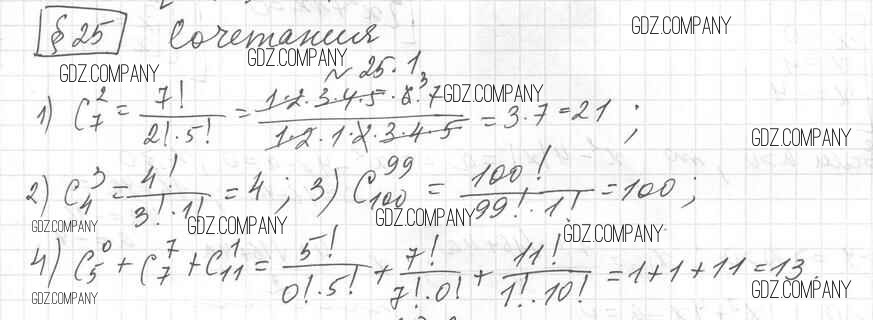 § 25 Сочетания GDZ.COMPANY
GDZ.COMPANY GDZ.COMPANY
№ 25.1
1) C₇² = 7! / 2!·5! = 1·2·3·4·5·6³·7 / 1·2·1·2·3·4·5 = 3·7 = 21 ; GDZ.COMPANY
GDZ.COMPANY
2) C₄³ = 4! / 3!·1! = 4 ; 3) C₁₀₀⁹⁹ = 100! / 99!·1! = 100 ;
GDZ.COMPANY GDZ.COMPANY GDZ.COMPANY GDZ.COMPANY
4) C₅⁰ + C₇⁷ + C₁₁¹ = 5! / 0!·5! + 7! / 7!·0! + 11! / 1!·10! = 1+1+11 = 13.
GDZ.COMPANY GDZ.COMPANY